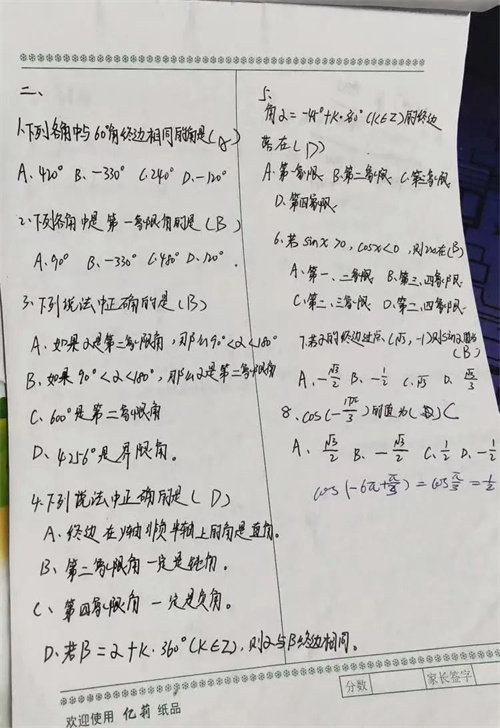 二、
1.下列各角中与60°角终边相同的角是(A)
A、420° B、-330° C.240° D.-120°
2.下列各角中是第一象限角的是(B)
A.90° B、-330° C.480° D.120°.
3.下列说法中正确的是(B)
A、如果α是第二象限角,那么90°<α<180°
B、如果90°<α<180°,那么α是第二象限角
C、600°是第二象限角
D、4256°是界限角。
4.下列说法中正确的是(D)
A、终边在y轴非负半轴上的角是直角。
B、第二象限角一定是钝角。
C、第四象限角一定是负角。
D.若β=α+k·360°(k∈Z),则α与β终边相同。
5、
角α=-45°+k·360°(k∈Z)的终边
落在(D)
A、第一象限 B、第二象限 C、第三象限
D、第四象限
6、若sinx>0,cosx<0,则2x在(B)
A、第一、二象限 B、第三、四象限
C、第二、三象限 D、第二、四象限
7.若α的终边过点(√3,-1)则sinα值为
(B)
A、-√3/2 B、-1/2 C、√3 D、√3/3
8、cos(-17π/3)的值为( )C
A、√3/2 B、-√3/2 C、1/2 D、-1/2
cos(-6π+π/3)=cosπ/3=1/2
分数 家长签字
欢迎使用 亿莉 纸品